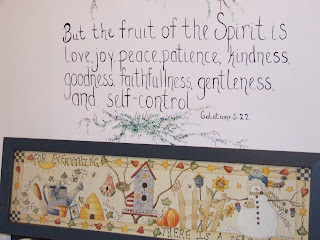 But the fruit of the Spirit is
love, joy, peace, patience, kindness,
goodness, faithfullness, gentleness
and self-control
Galatians 5:22
FOR EVERYTHING
THERE IS A